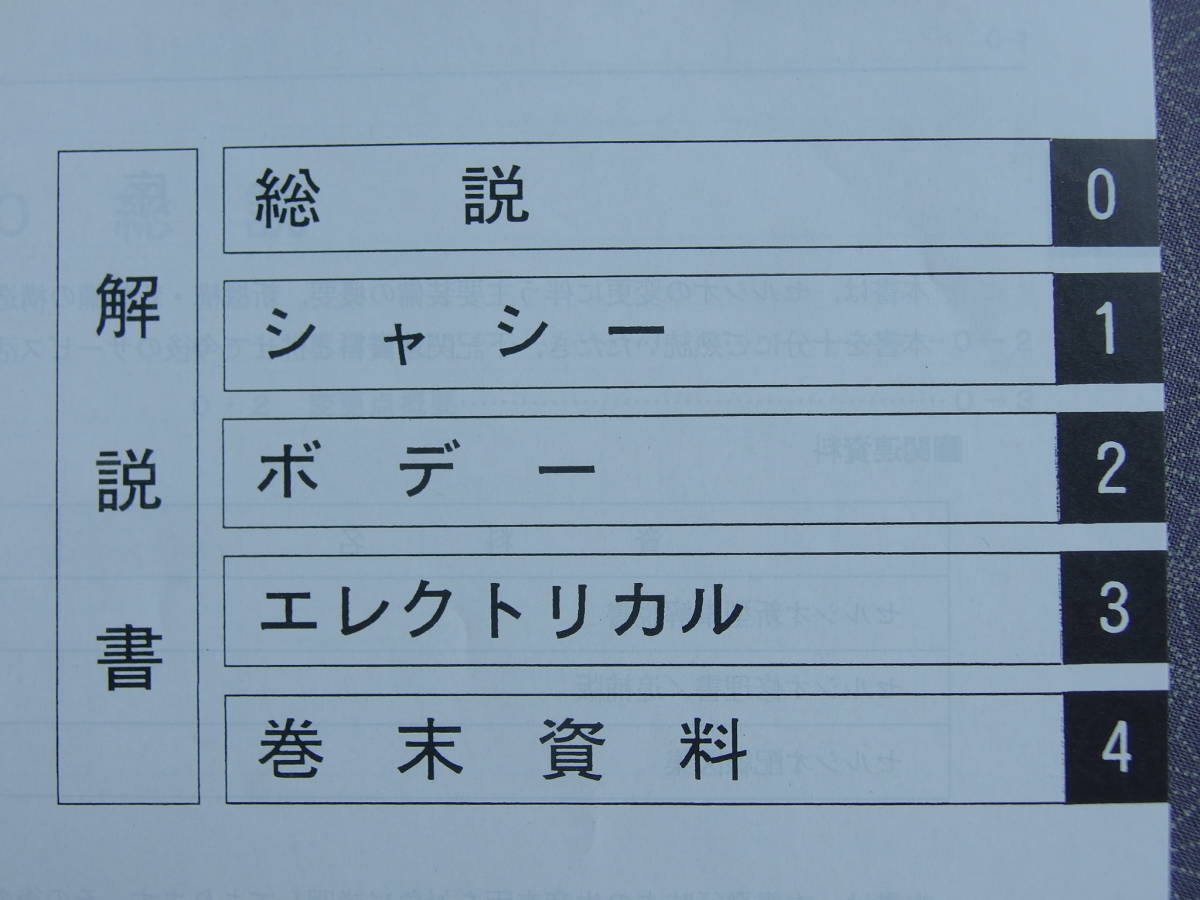 解説書
総説 0
シャシー 1
ボデー 2
エレクトリカル 3
巻末資料 4